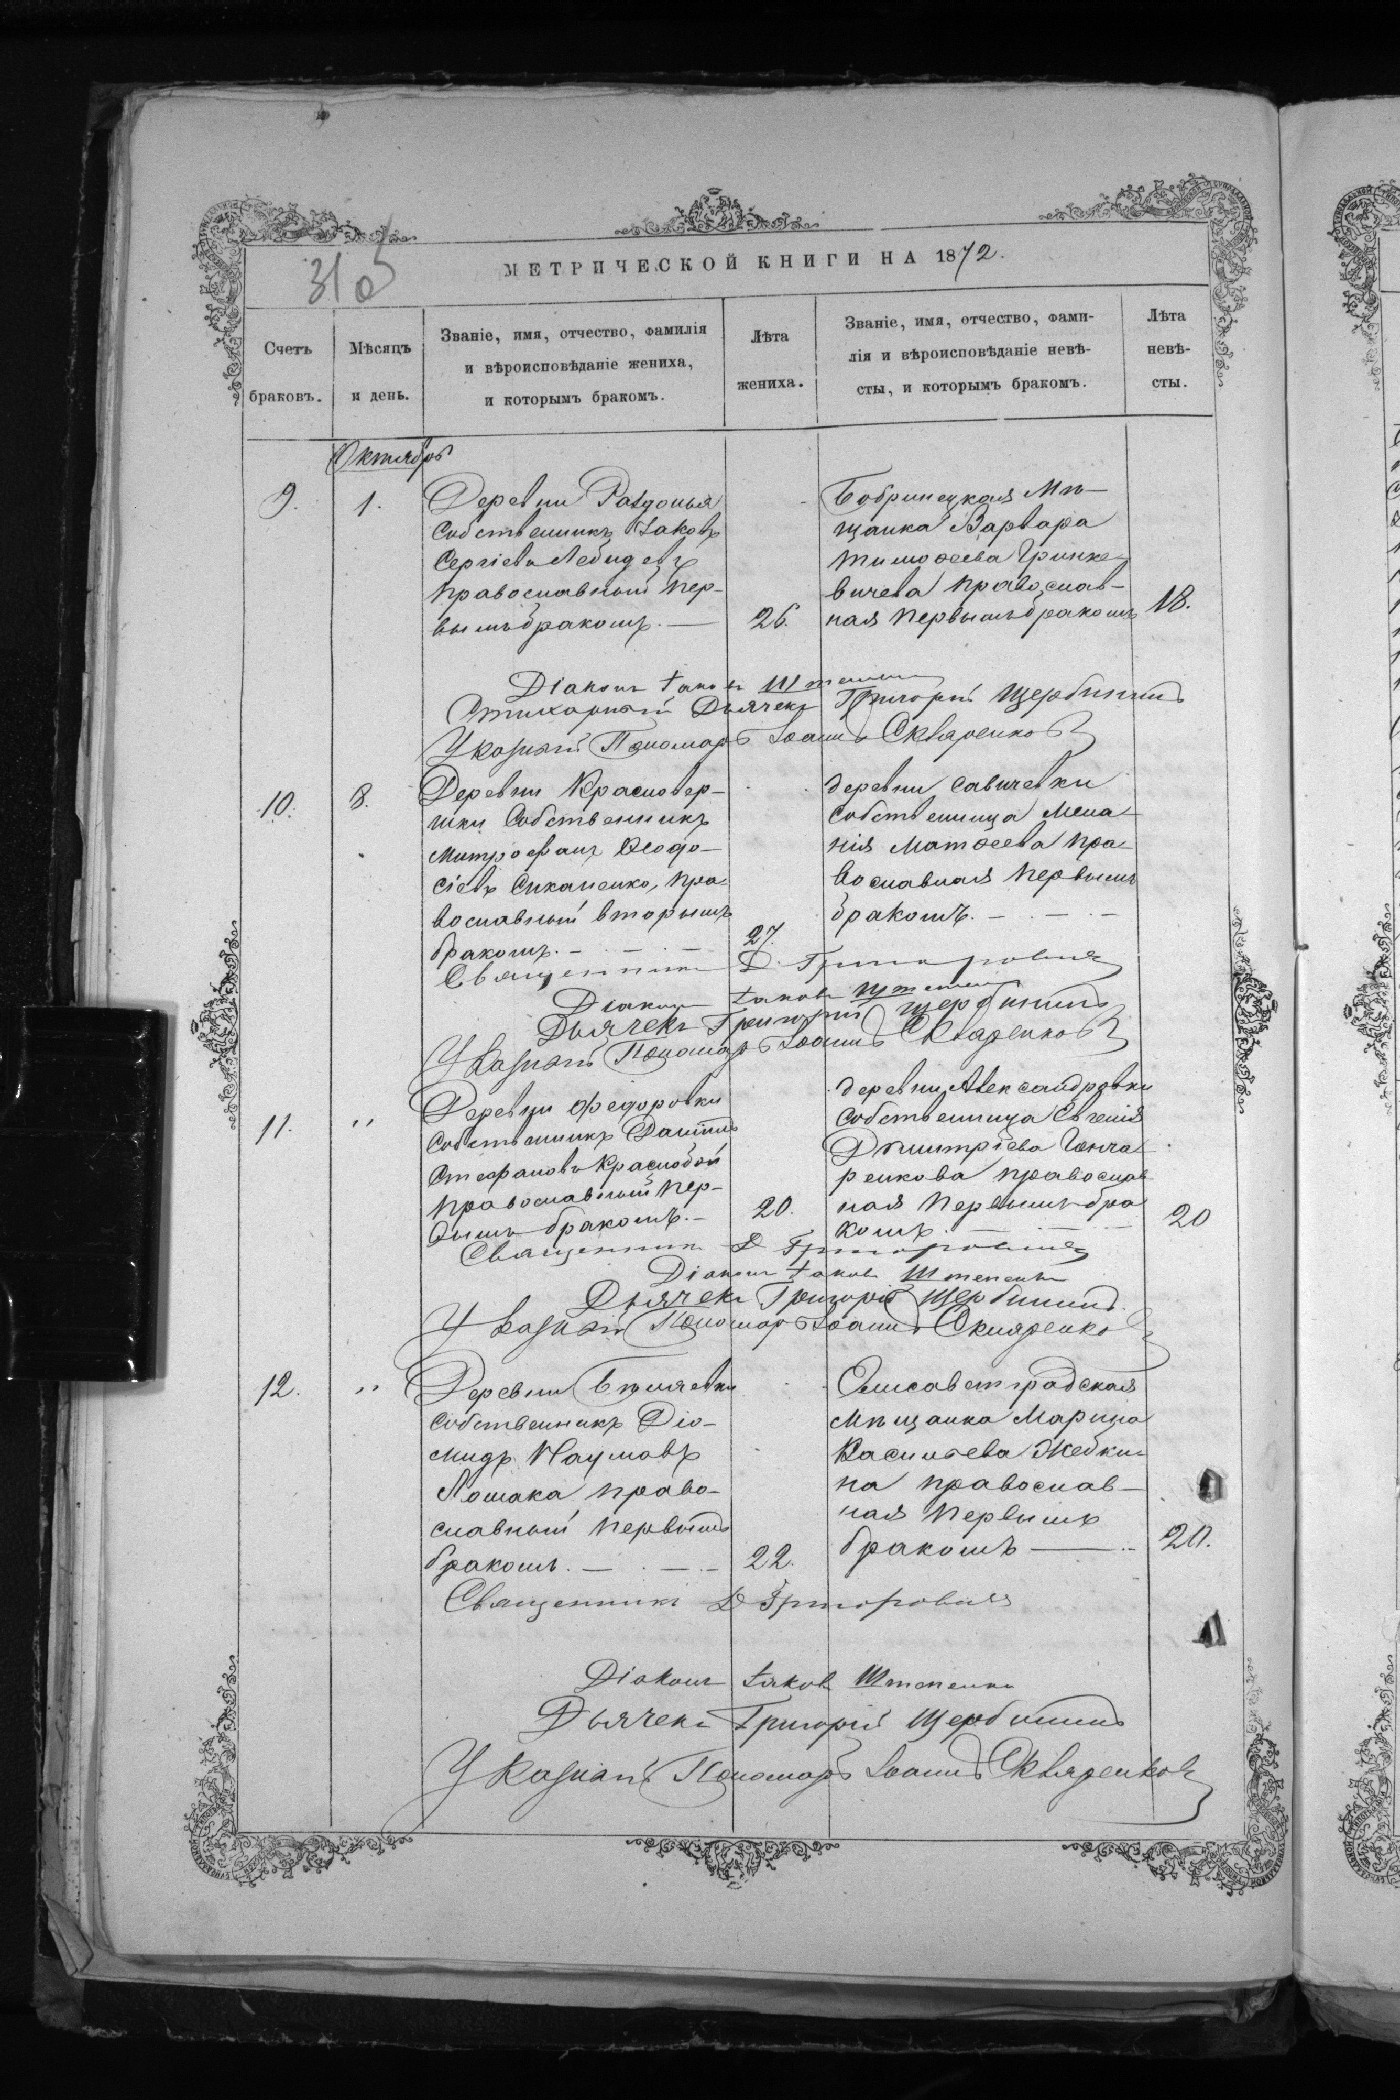 МЕТРИЧЕСКОЙ КНИГИ НА 1872.
Счетъ
браковъ.
Мѣсяцъ
и день.
Званіе, имя, отчество, фамилія
и вѣроисповѣданіе жениха,
и которымъ бракомъ.
Лѣта
жениха.
Званіе, имя, отчество, фами-
лія и вѣроисповѣданіе невѣ-
сты, и которымъ бракомъ.
Лѣта
невѣ-
сты.
Октябрь
9.
1.
Деревни Раздолья
Собственникъ Іаковъ
Сергіевъ Лебидевъ
православный пер-
вымъ бракомъ. —
26.
Бобринецкая Мѣ-
щанка Варвара
Тимоѳеева Гринке-
вичева православ-
ная первымъ бракомъ
18.
Діаконъ Іаковъ
Стихарный Дьячекъ Григорій Щербининъ
Указный Пономарь Іоаннъ Скляренковъ
10.
8.
Деревни Красновер-
шки Собственникъ
Митрофанъ Ѳеодо-
сіевъ Сикаленко, пра-
вославный вторымъ
бракомъ. — — —
27.
деревни Савичевки
собственница Мела-
нія Матѳеева пра-
вославная первымъ
бракомъ. — — —
Священникъ Д. Григоровичъ
Діаконъ Іаковъ
Дьячекъ Григорій Щербининъ
Указный Пономарь Іоаннъ Скляренковъ
11.
"
Деревни Федоровки
собственникъ Даніилъ
Стефановъ Краснобай
православный пер-
вымъ бракомъ. —
20.
деревни Александровки
собственница Евгенія
Дмитріева Гонча-
ренкова православ-
ная первымъ бра-
комъ. — — —
20
Священникъ Д Григоровичъ
Діаконъ Іаковъ
Дьячекъ Григорій Щербининъ.
Указный Пономарь Іоаннъ Скляренко
12.
"
Деревни Бѣляевки
собственникъ Діо-
мидъ Наумовъ
Лошака право-
славный первымъ
бракомъ. — — —
22.
Елисаветградская
Мѣщанка Марина
Васильева Жебки-
на православ-
ная первымъ
бракомъ — ..
20.
Священникъ Д Григоровичъ
Діаконъ Іаковъ
Дьячекъ Григорій Щербининъ
Указный Пономарь Іоаннъ Скляренковъ